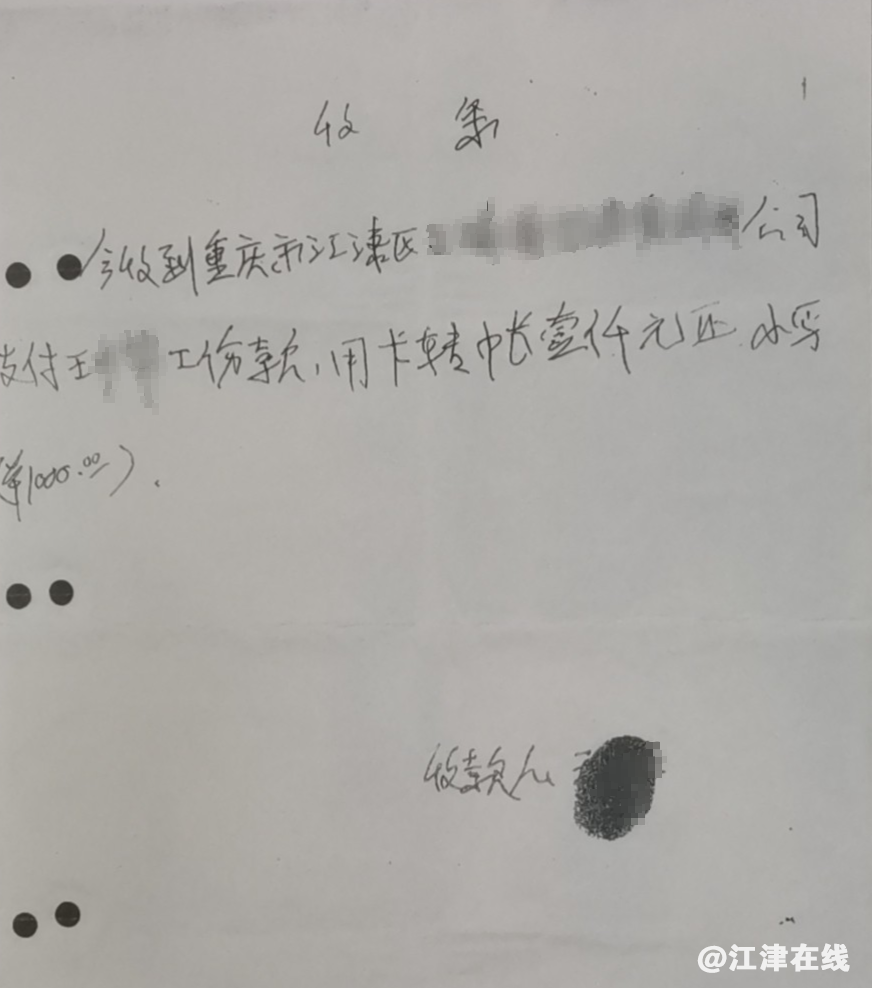 收 条
今收到重庆市江津区 公司
支付王 工伤款,用卡转帐壹仟元正 小写
1000.00).
收款人
@江津在线